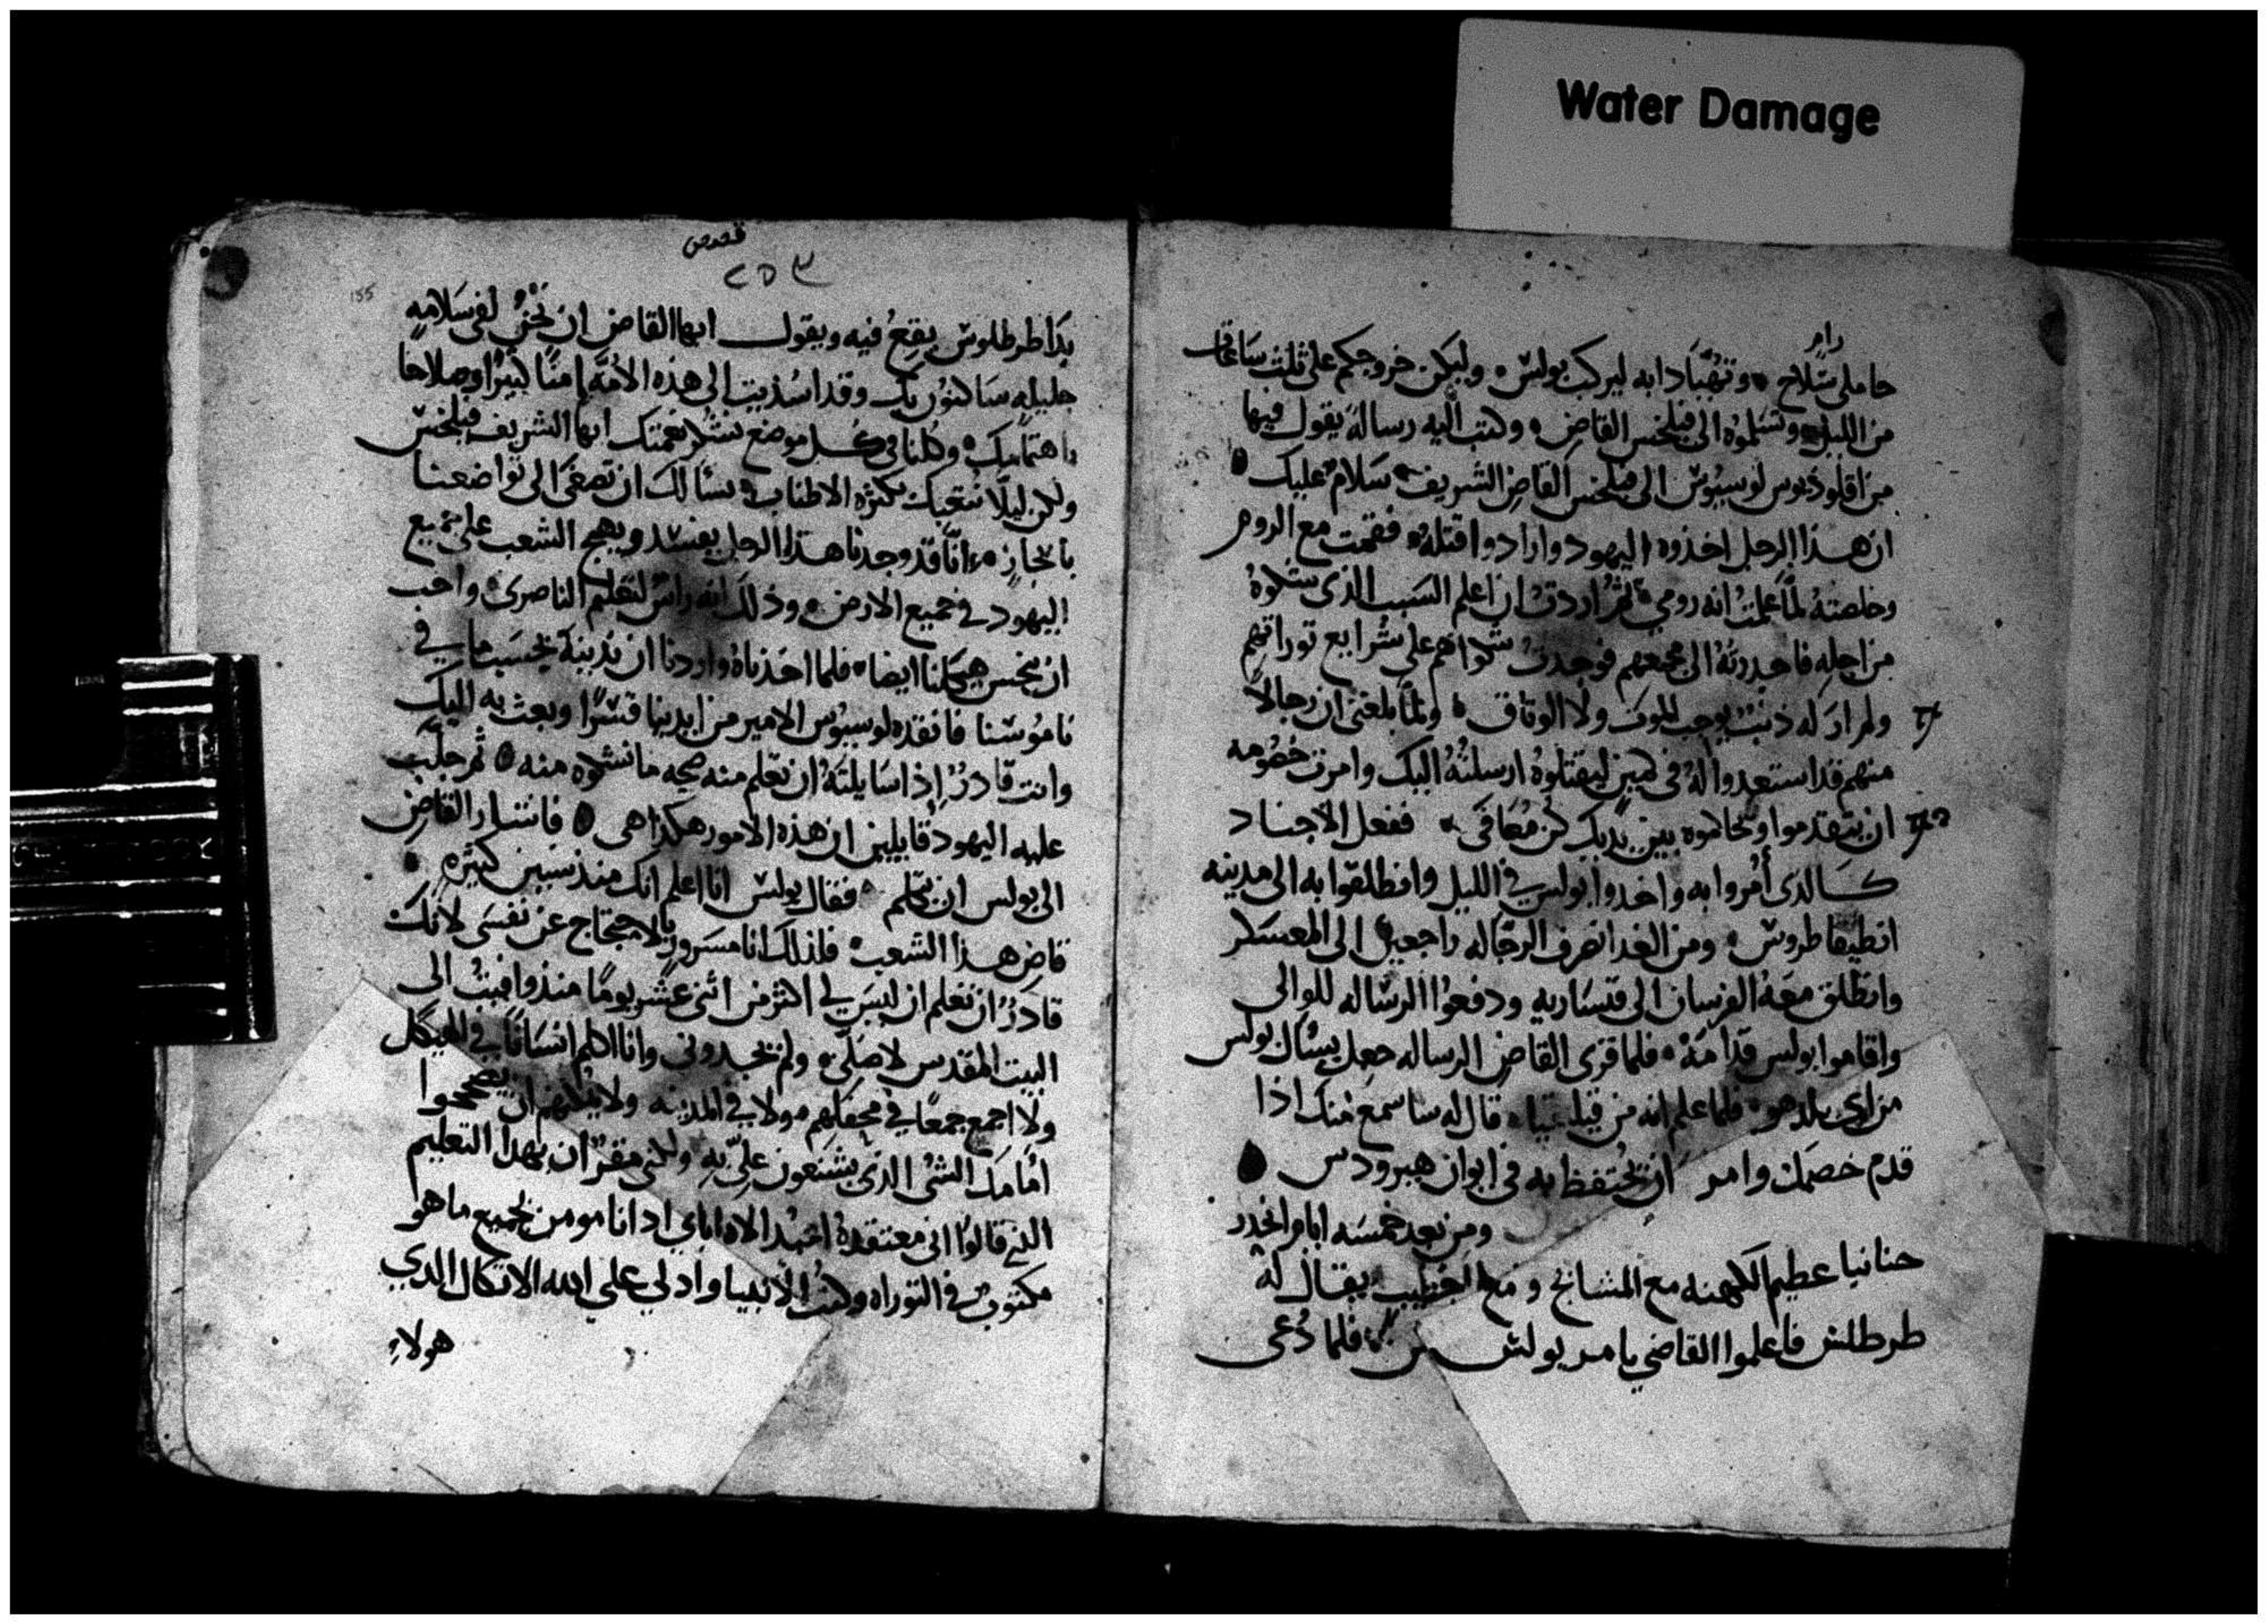 Water Damage
رام
حاملى سلاح وتهيا دابه ليركب بولس وليكن خروجكم على ثلث ساعات
من الليل وتسلموه الى فيلخس القاضى وكتب اليه رساله يقول فيها
من اقلوذيوس لوسيوس الى فيلخس القاضى الشريف سلام عليك
ان هذا الرجل اخذوه اليهود وارادوا قتله فقمت مع الروم
وخلصته لما علمت انه رومي ثم اردت ان اعلم السبب الذى شكوه
من اجله فاحدرته الى مجمعهم فوجدت شكواهم على شرايع توراتهم
ولم ار له ذنب يوجب الموت ولا الوثاق ولما بلغنى ان رجالا
منهم قد استعدوا له فى كمين ليقتلوه ارسلته اليك وامرت خصومه
ان يتقدموا وتحاكموه بين يديك كن معافى ففعل الاجناد
كالذى أمروا به واخدوا بولس في الليل وانطلقوا به الى مدينه
انطيفاطروس ومن الغد انصرف الرجاله راجعين الى المعسكر
وانطلق معه الفرسان الى قيساريه ودفعوا الرساله للوالى
واقاموا بولس قدامه فلما قرى القاضى الرساله جعل يسال بولس
من اى بلد هو فلما علم انه من قيليقيا قال له ساسمع منك اذا
قدم خصمك وامر ان يحتفظ به فى ايوان هيرودس
ومن بعد خمسه ايام انحدر
حنانيا عظيم الكهنه مع المشايخ و مع الخطيب يقال له
طرطلس فاعلموا القاضي بامر بولس فلما دعى
قصص
٢٥٣
155
بدا طرطلوس يقع فيه ويقول ايها القاضى ان نحن لفى سلامه
جليله ساكنون بك وقد اسديت الى هذه الأمه امنا كبيرا وصلاحا
باهتمامك وكلنا فى كل موضع نشكر نعمتك ايها الشريف فيلخس
ولكن ليلا نتعبك بكثره الاطناب نسالك ان تصغى الى تواضعنا
بايجاز انا قد وجدنا هذا الرجل يفسد ويهيج الشعب على جميع
اليهود في جميع الارض وذلك انه راس لتعليم الناصرى واحب
ان ينجس هيكلنا ايضا فلما اخذناه واردنا ان ندينه بحسب ما في
ناموسنا فانقده لوسيوس الامير من ايدينا قسرا وبعث به اليك
وانت قادر إذا سايلته ان تعلم منه صحه ما نشكوه منه ثم جلب
عليه اليهود قايلين ان هذه الامور هكذا هى فاشار القاضى
الى بولس ان يتكلم فقال بولس انا اعلم انك منذ سنين كثيره
قاضى هذا الشعب فلذلك انا مسرور بالاحتجاج عن نفسى لانك
قادر ان تعلم ان ليس لى اكثر من اثنى عشر يوما منذ وافيت الى
البيت المقدس لاصلى ولم يجدونى وانا اكلم انسانا في الهيكل
ولا اجمع جمعا في محفلهم ولا في المدينه ولا يمكنهم ان يصححوا
أمامك الشى الذى يشنعون على به ولكنى مقر ان بهدا التعليم
الذي قالوا انى معتقده اعبد الاه اباي اد انا مومن بجميع ما هو
مكتوب في التوراه وكتب الأنبيا واد لي على الله الاتكال الدي
هولاء